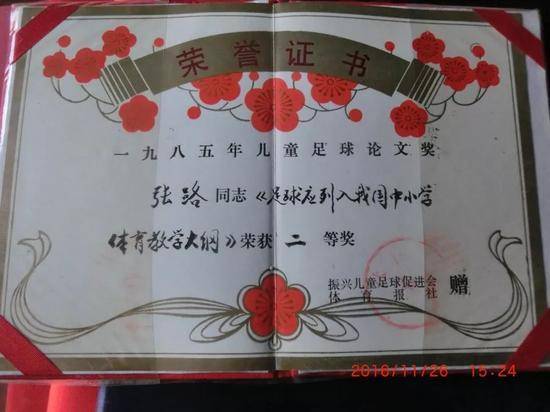 荣誉证书
一九八五年儿童足球论文奖
张路同志《足球应列入我国中小学
体育教学大纲》荣获二等奖
振兴儿童足球促进会
体育报社 赠
2016/11/26 15:24